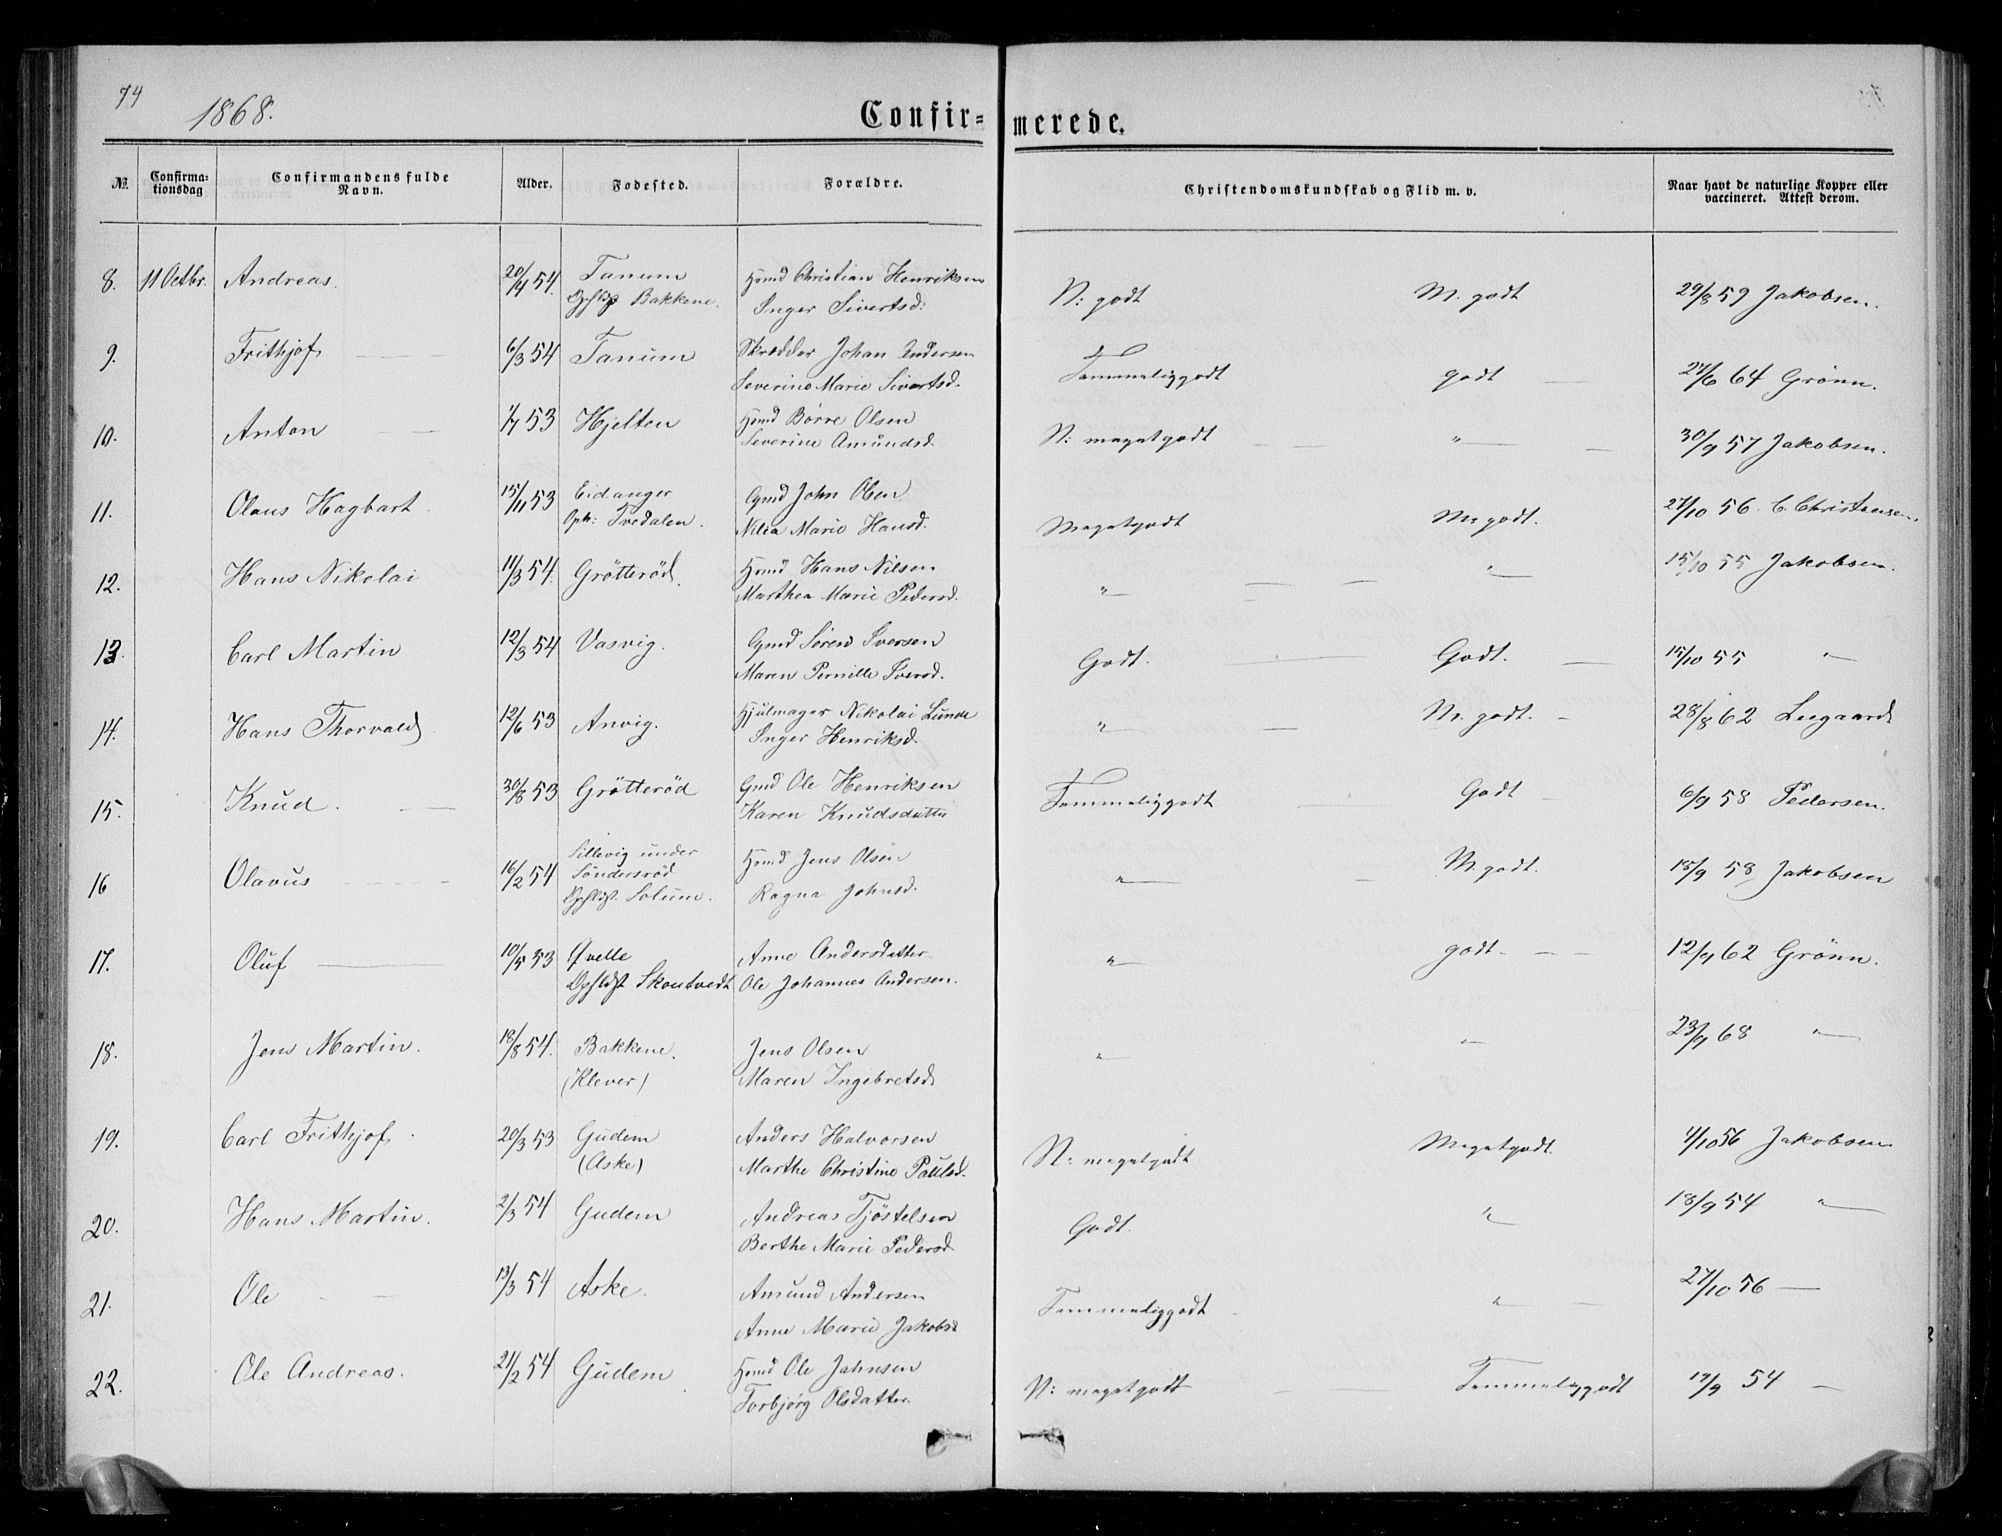 74
1868.
Confir-merede.
№
Confirma-tionsdag
Confirmandens fulde Navn.
Alder.
Fødested.
Forældre.
Christendomskundskab og Flid m. v.
Naar havt de naturlige Kopper eller vaccineret. Attest derom.
8. 11 Octbr. Andreas. 20/4 54. Tanum Hmd Christian Henriksen
Bakkene. Inger Sivertsd:
N: godt M. godt 29/8 59 Jakobsen.
9. Frithjof 6/3 54 Tanum Skrædder Johan Andersen
Severine Marie Sivertsd.
Temmeliggodt godt 27/6 64 Grönn.
10. Anton 1/7 53 Hjelten Hmd Börre Olsen
Severine Amundsd.
N: megetgodt " 30/9 57 Jakobsen.
11. Olaus Hagbart. 15/11 53 Eidanger Gmd John Olsen
Oph: Tvedalen. Marie Hansd.
Megetgodt M. godt. 27/10 56. C. Christensen.
12. Hans Nikolai 11/3 54. Grötteröd. Hmd Hans Nilsen
Marthea Marie Pedersd.
" " 15/10 55 Jakobsen.
13. Carl Martin 12/3 54 Vasvig. Gmd Sören Iversen
Maren Pernille Iversd.
Godt. Godt. 15/10 55 "
14. Hans Thorvald 12/6 53 Anvig. Hjulmager Nikolai Lunde
Inger Henriksd.
" M. godt. 28/8 62 Leegaard
15. Knud. 30/8 53 Grötteröd Gmd Ole Henriksen
Karen Knudsdatter
Temmeliggodt Godt 6/9 58 Pedersen.
16 Olavus 16/2 54 Sillevig under Hmd Jens Olsen
Söndersröd
Solum. Ragna Johnsd.
" M. godt. 18/9 58 Jakobsen
17. Oluf 10/5 53 Qvelle Anne Andersdatter
Skoutvedt Ole Johannes Andersen.
" godt 12/9 62 Grönn.
18. Jens Martin. 18/8 54. Bakkene. Jens Olsen
(Klever) Maren Ingebretsd
" " 23/9 68 "
19. Carl Frithjof. 20/3 53 Gudem Anders Halvorsen
(Aske) Marthe Christine Paulsd.
N: megetgodt Megetgodt. 4/10 56 Jakobsen
20. Hans Martin. 2/3 54 Gudem Andreas Tjöstelsen
Berthe Marie Pedersd
Godt. " 18/9 54 "
21. Ole 13/3 54 Aske. Amund Andersen
Anne Marie Jakobsd
Temmeliggodt " 27/10 56
22. Ole Andreas. 21/2 54 Gudem Hmd Ole Jahnsen
Torbjörg Olsdatter.
N: megetgodt Temmeliggodt 19/9 54